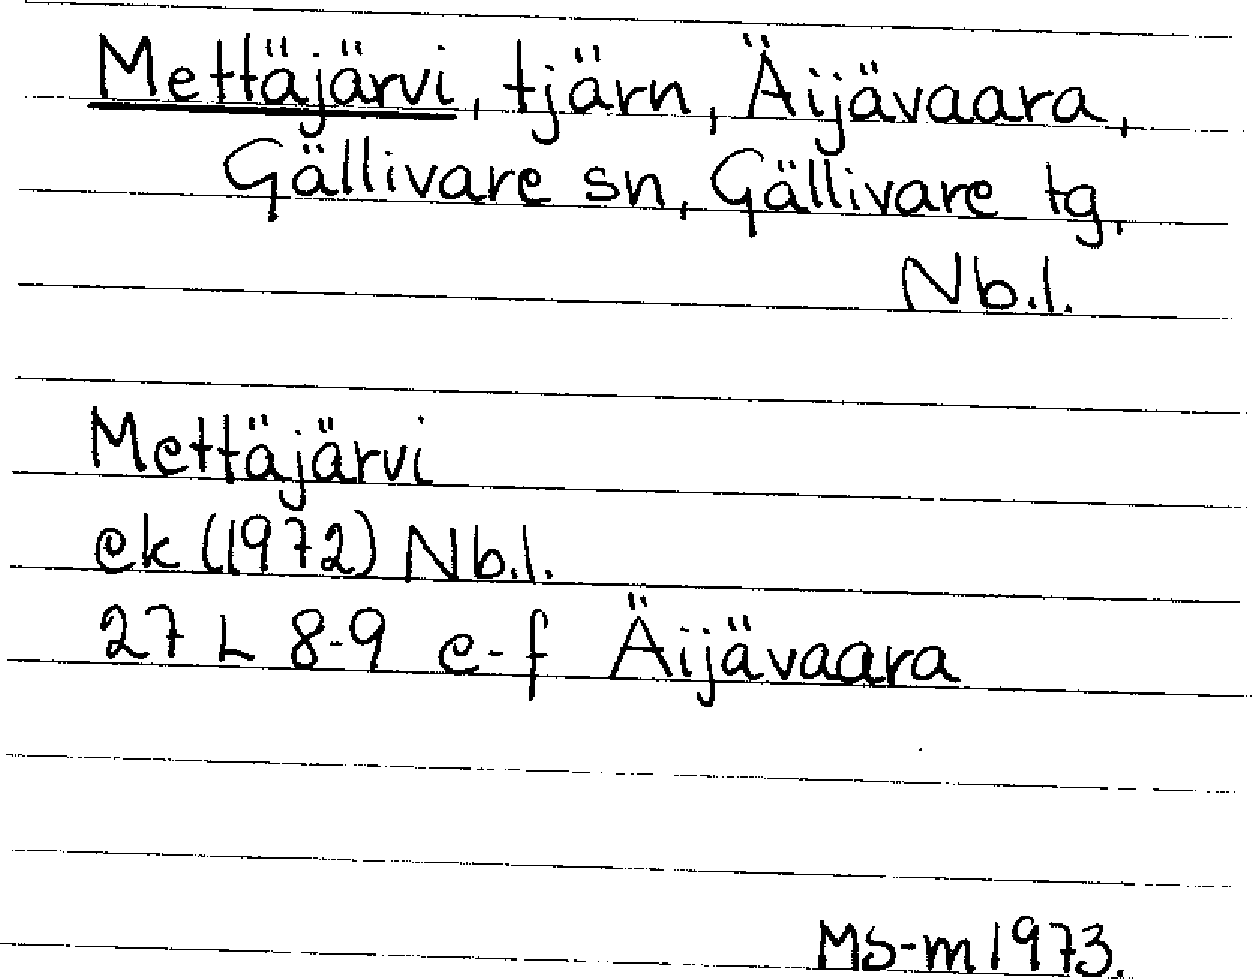 Mettäjärvi, tjärn, Äijävaara,
Gällivare sn, Gällivare tg,
Nb.l.
Mettäjärvi
ek (1972) Nb.l.
27 L 8-9 e-f Äijävaara
MS-m 1973.